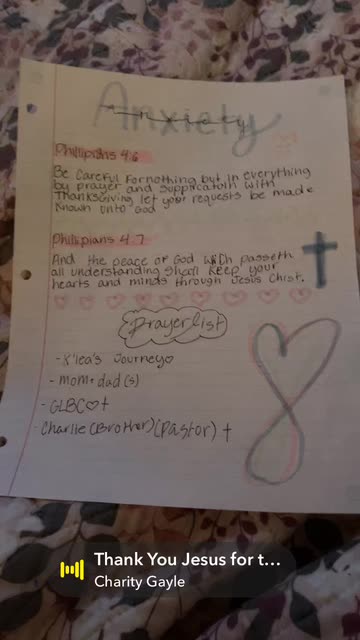 Anxiety
Phillipians 4:6
Be careful for nothing but in everything
by prayer and supplicatoin with
Thanksgiving let your requests be made
known unto God
Phillipians 4:7
And the peace of God wich passeth
all understanding shall keep your
hearts and minds through Jesus Christ.
Prayer list
- K'lea's Journey
- mom + dad(s)
- GLBC
- Charlie (Brother) (Pastor)
Thank You Jesus for t...
Charity Gayle